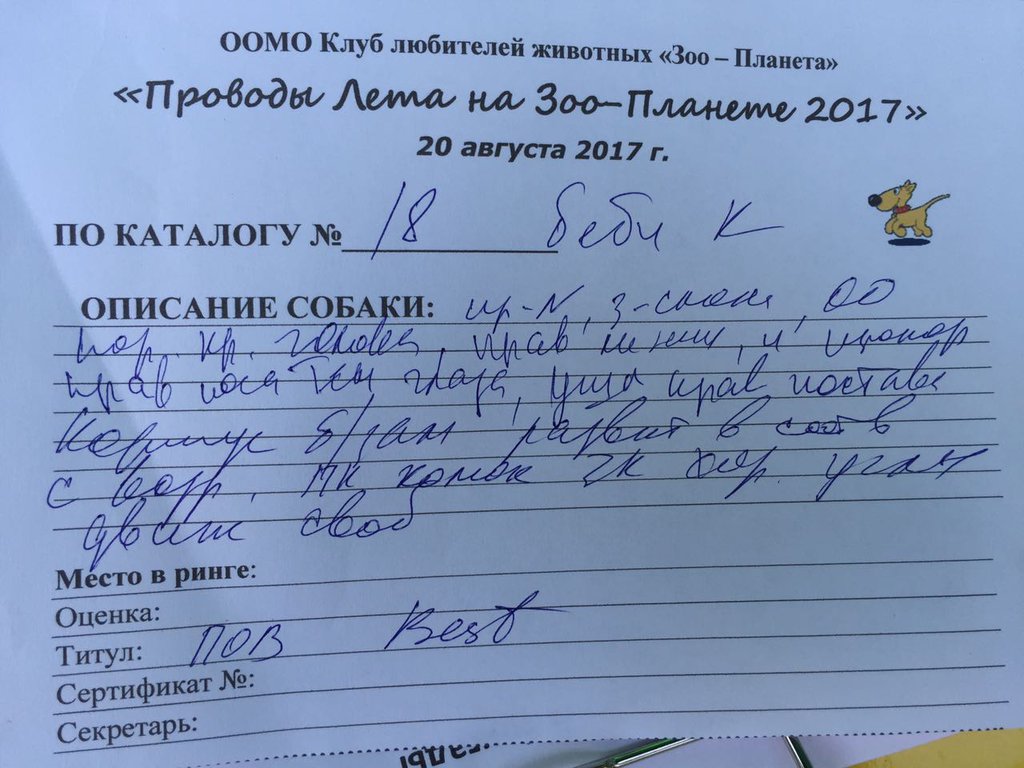 ООМО Клуб любителей животных «Зоо – Планета»
«Проводы Лета на Зоо-Планете 2017»
20 августа 2017 г.
ПО КАТАЛОГУ № 18 беби К
ОПИСАНИЕ СОБАКИ: пр-N, з-
хор. кр. голова, прав линии, и пропор
прав глаза, уши прав постава
Корпус б/зам развит в соотв
с возр. ПК ЗК хор. углы
движ своб
Место в ринге:
Оценка:
Титул: ПОВ Best
Сертификат №:
Секретарь: